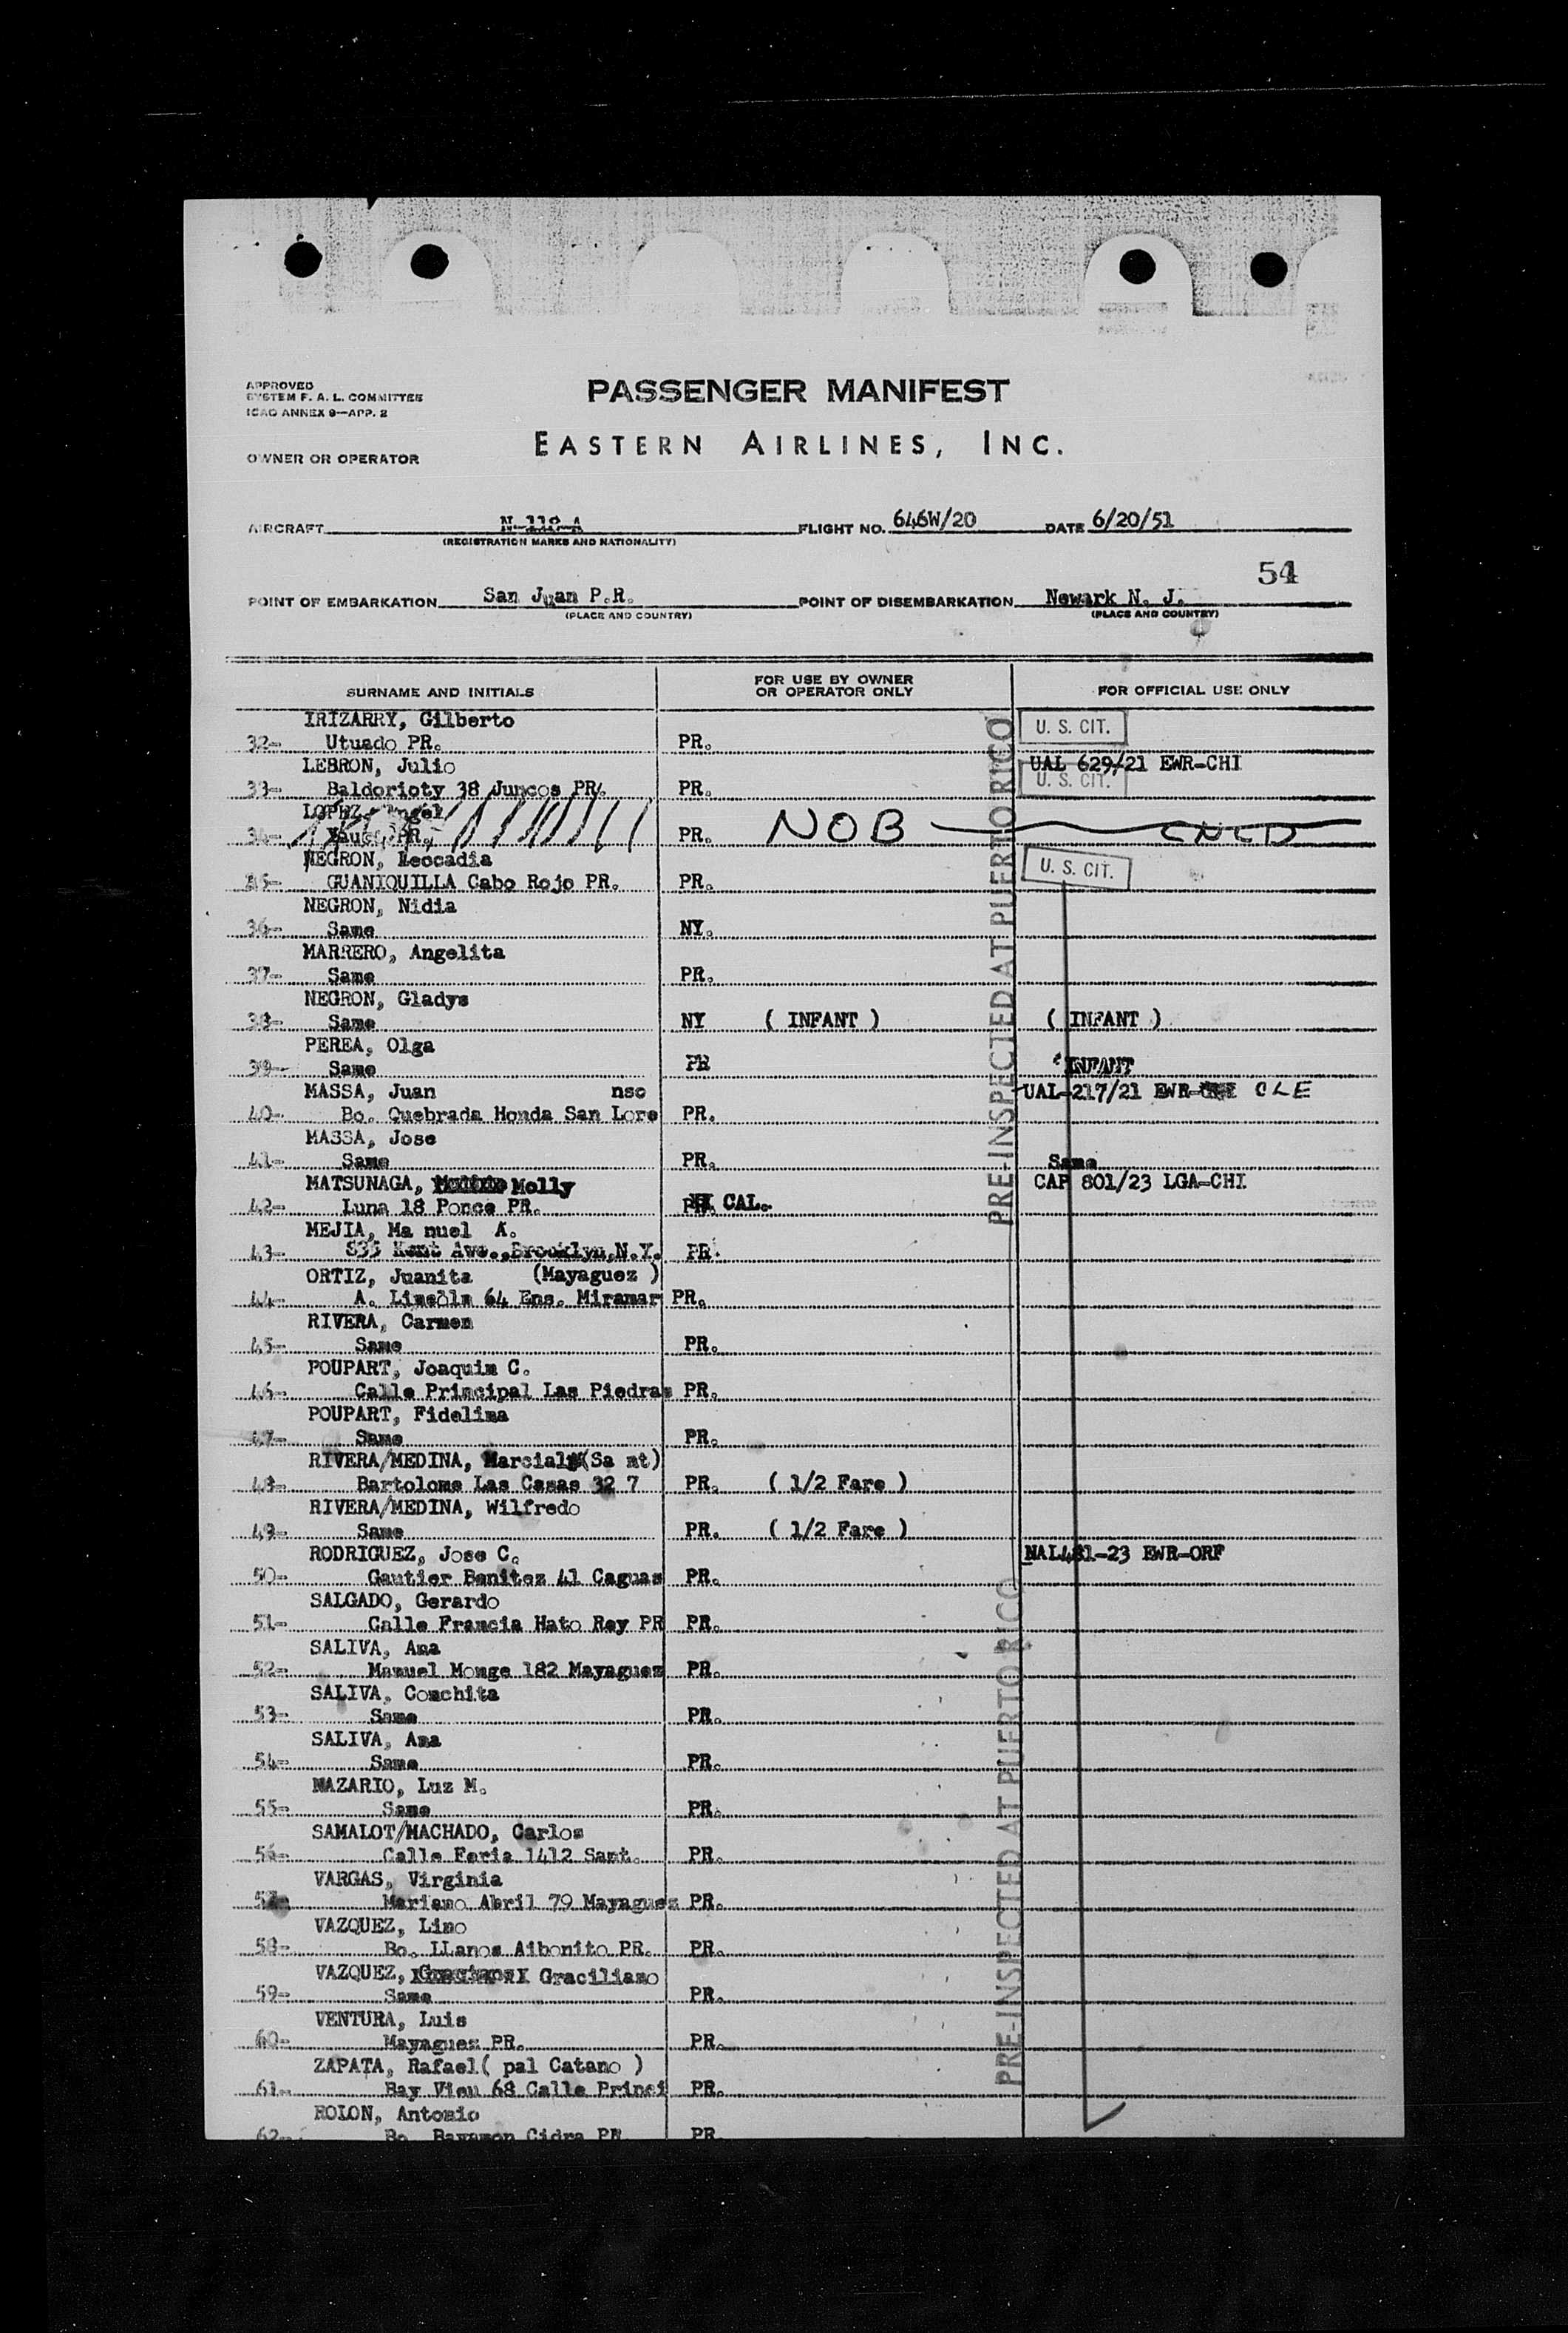 APPROVED
SYSTEM F. A. L. COMMITTEE
ICAO ANNEX 9—APP. 2
PASSENGER MANIFEST
EASTERN AIRLINES, INC.
OWNER OR OPERATOR
AIRCRAFT N-118-A FLIGHT NO. 646W/20 DATE 6/20/51
(REGISTRATION MARKS AND NATIONALITY)
54
POINT OF EMBARKATION San Juan P.R. POINT OF DISEMBARKATION Newark N. J.
(PLACE AND COUNTRY) (PLACE AND COUNTRY)
SURNAME AND INITIALS FOR USE BY OWNER OR OPERATOR ONLY FOR OFFICIAL USE ONLY
IRIZARRY, Gilberto U. S. CIT.
32- Utuado PR. PR.
LEBRON, Julio UAL 629/21 EWR-CHI
33- Baldorioty 38 Juncos PR. PR. U. S. CIT.
LOPEZ, Angel
34- Yauco PR. PR. NOB CNLD
NEGRON, Leocadia U. S. CIT.
35- GUANIQUILLA Cabo Rojo PR. PR.
NEGRON, Nidia
36- Same NY.
MARRERO, Angelita
37- Same PR.
NEGRON, Gladys
38- Same NY ( INFANT ) ( INFANT )
PEREA, Olga
39- Same PR INFANT
MASSA, Juan nso UAL-217/21 EWR- CLE
40- Bo. Quebrada Honda San Lore PR.
MASSA, Jose
41- Same PR. Same
MATSUNAGA, Molly CAP 801/23 LGA-CHI
42- Luna 18 Ponce PR. CAL.
MEJIA, Ma nuel A.
43- 835 Kent Ave., Brooklyn, N.Y. PR.
ORTIZ, Juanita (Mayaguez )
44- A. Lincoln 64 Ens. Miramar PR.
RIVERA, Carmen
45- Same PR.
POUPART, Joaquin C.
46- Calle Principal Las Piedras PR.
POUPART, Fidelina
47- Same PR.
RIVERA/MEDINA, Marcial (Sa nt)
48- Bartolome Las Casas 32 7 PR. ( 1/2 Fare )
RIVERA/MEDINA, Wilfredo
49- Same PR. ( 1/2 Fare )
RODRIGUEZ, Jose C. NAL481-23 EWR-ORF
50- Gautier Benitez 41 Caguas PR.
SALGADO, Gerardo
51- Calle Francia Hato Rey PR PR.
SALIVA, Ana
52- Manuel Monge 182 Mayaguez PR.
SALIVA, Conchita
53- Same PR.
SALIVA, Ana
54- Same PR.
NAZARIO, Luz M.
55- Same PR.
SAMALOT/MACHADO, Carlos
56- Calle Feria 1412 Sant. PR.
VARGAS, Virginia
57- Mariano Abril 79 Mayaguez PR.
VAZQUEZ, Lino
58- Bo. LLanos Aibonito PR. PR.
VAZQUEZ, Graciliano
59- Same PR.
VENTURA, Luis
60- Mayaguez PR. PR.
ZAPATA, Rafael( pal Catano )
61- Bay View 68 Calle Princi PR.
ROLON, Antonio
62- Bo. Bayamon Cidra PR PR
PRE-INSPECTED AT PUERTO RICO
PRE-INSPECTED AT PUERTO RICO